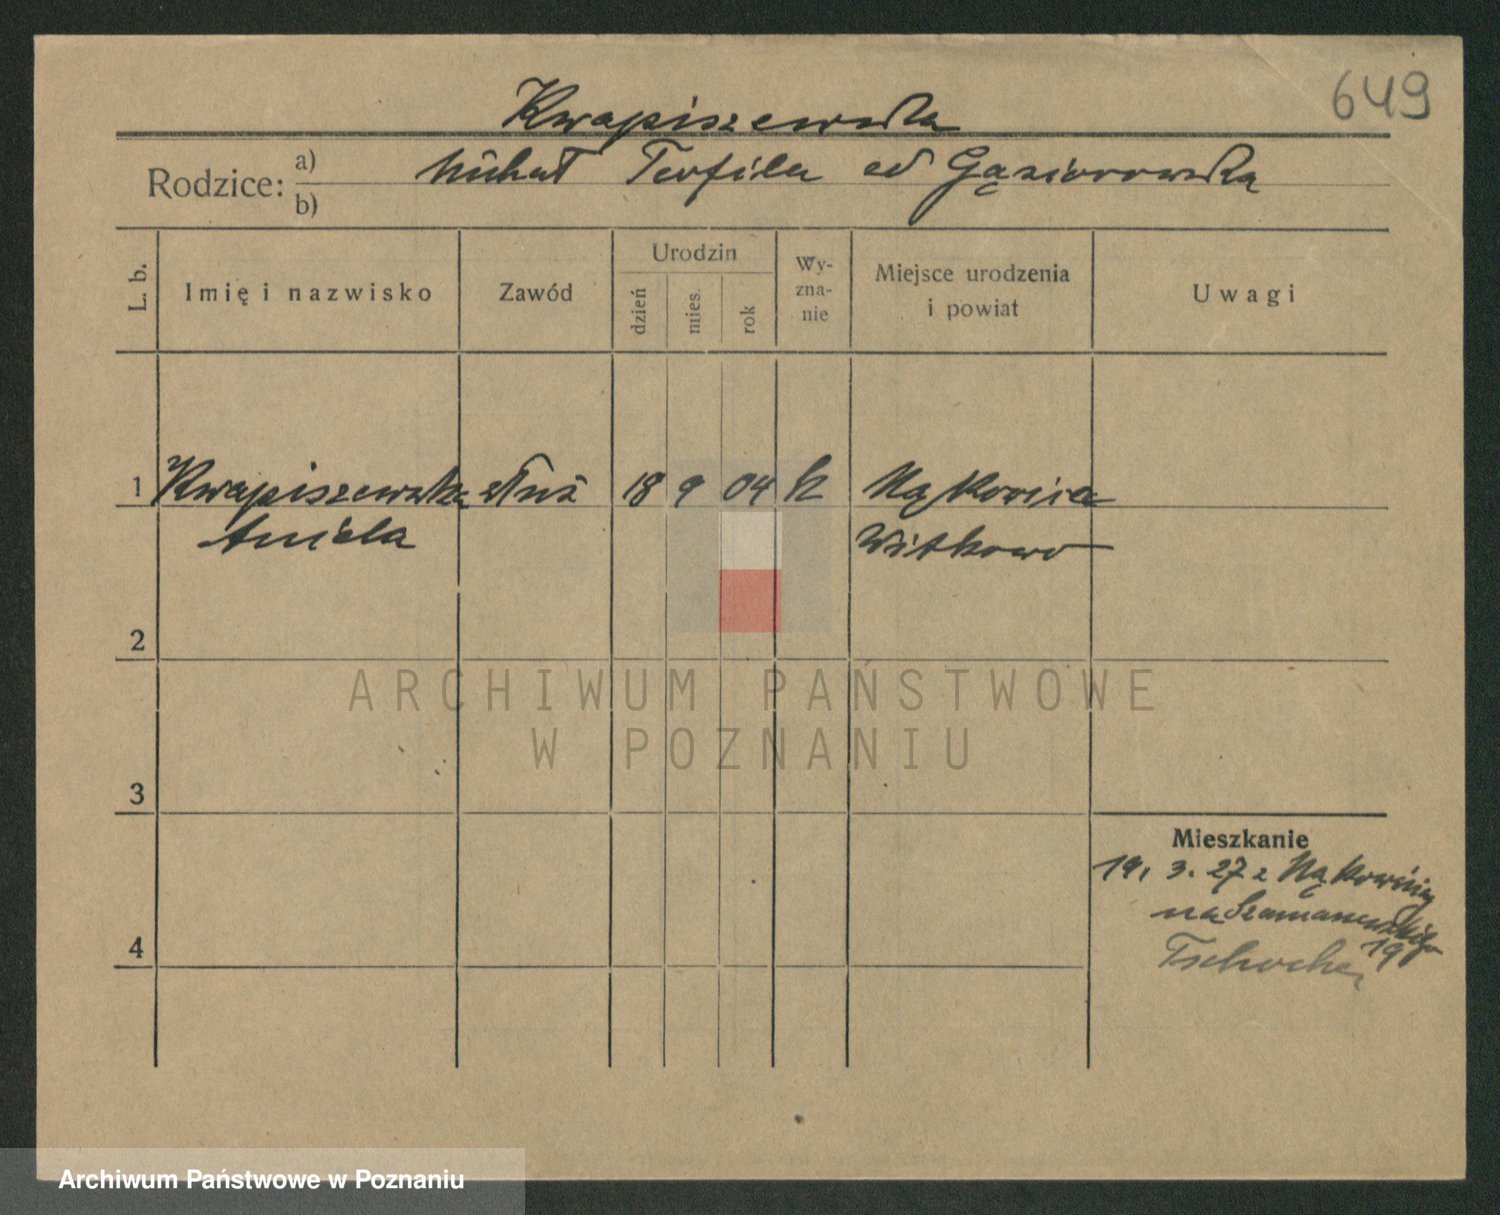 649
Kwapiszewska
Rodzice: a) Michał Teofila od Gąsiorowska
b)
L. b.
Imię i nazwisko
Zawód
Urodzin
dzień
mies.
rok
Wy-
zna-
nie
Miejsce urodzenia
i powiat
Uwagi
1 Kwapiszewska służ 18 9 04 k
Aniela
Witkowo
2
ARCHIWUM PAŃSTWOWE
W POZNANIU
3
Mieszkanie
19. 3. 27 z
na
19
4
Archiwum Państwowe w Poznaniu